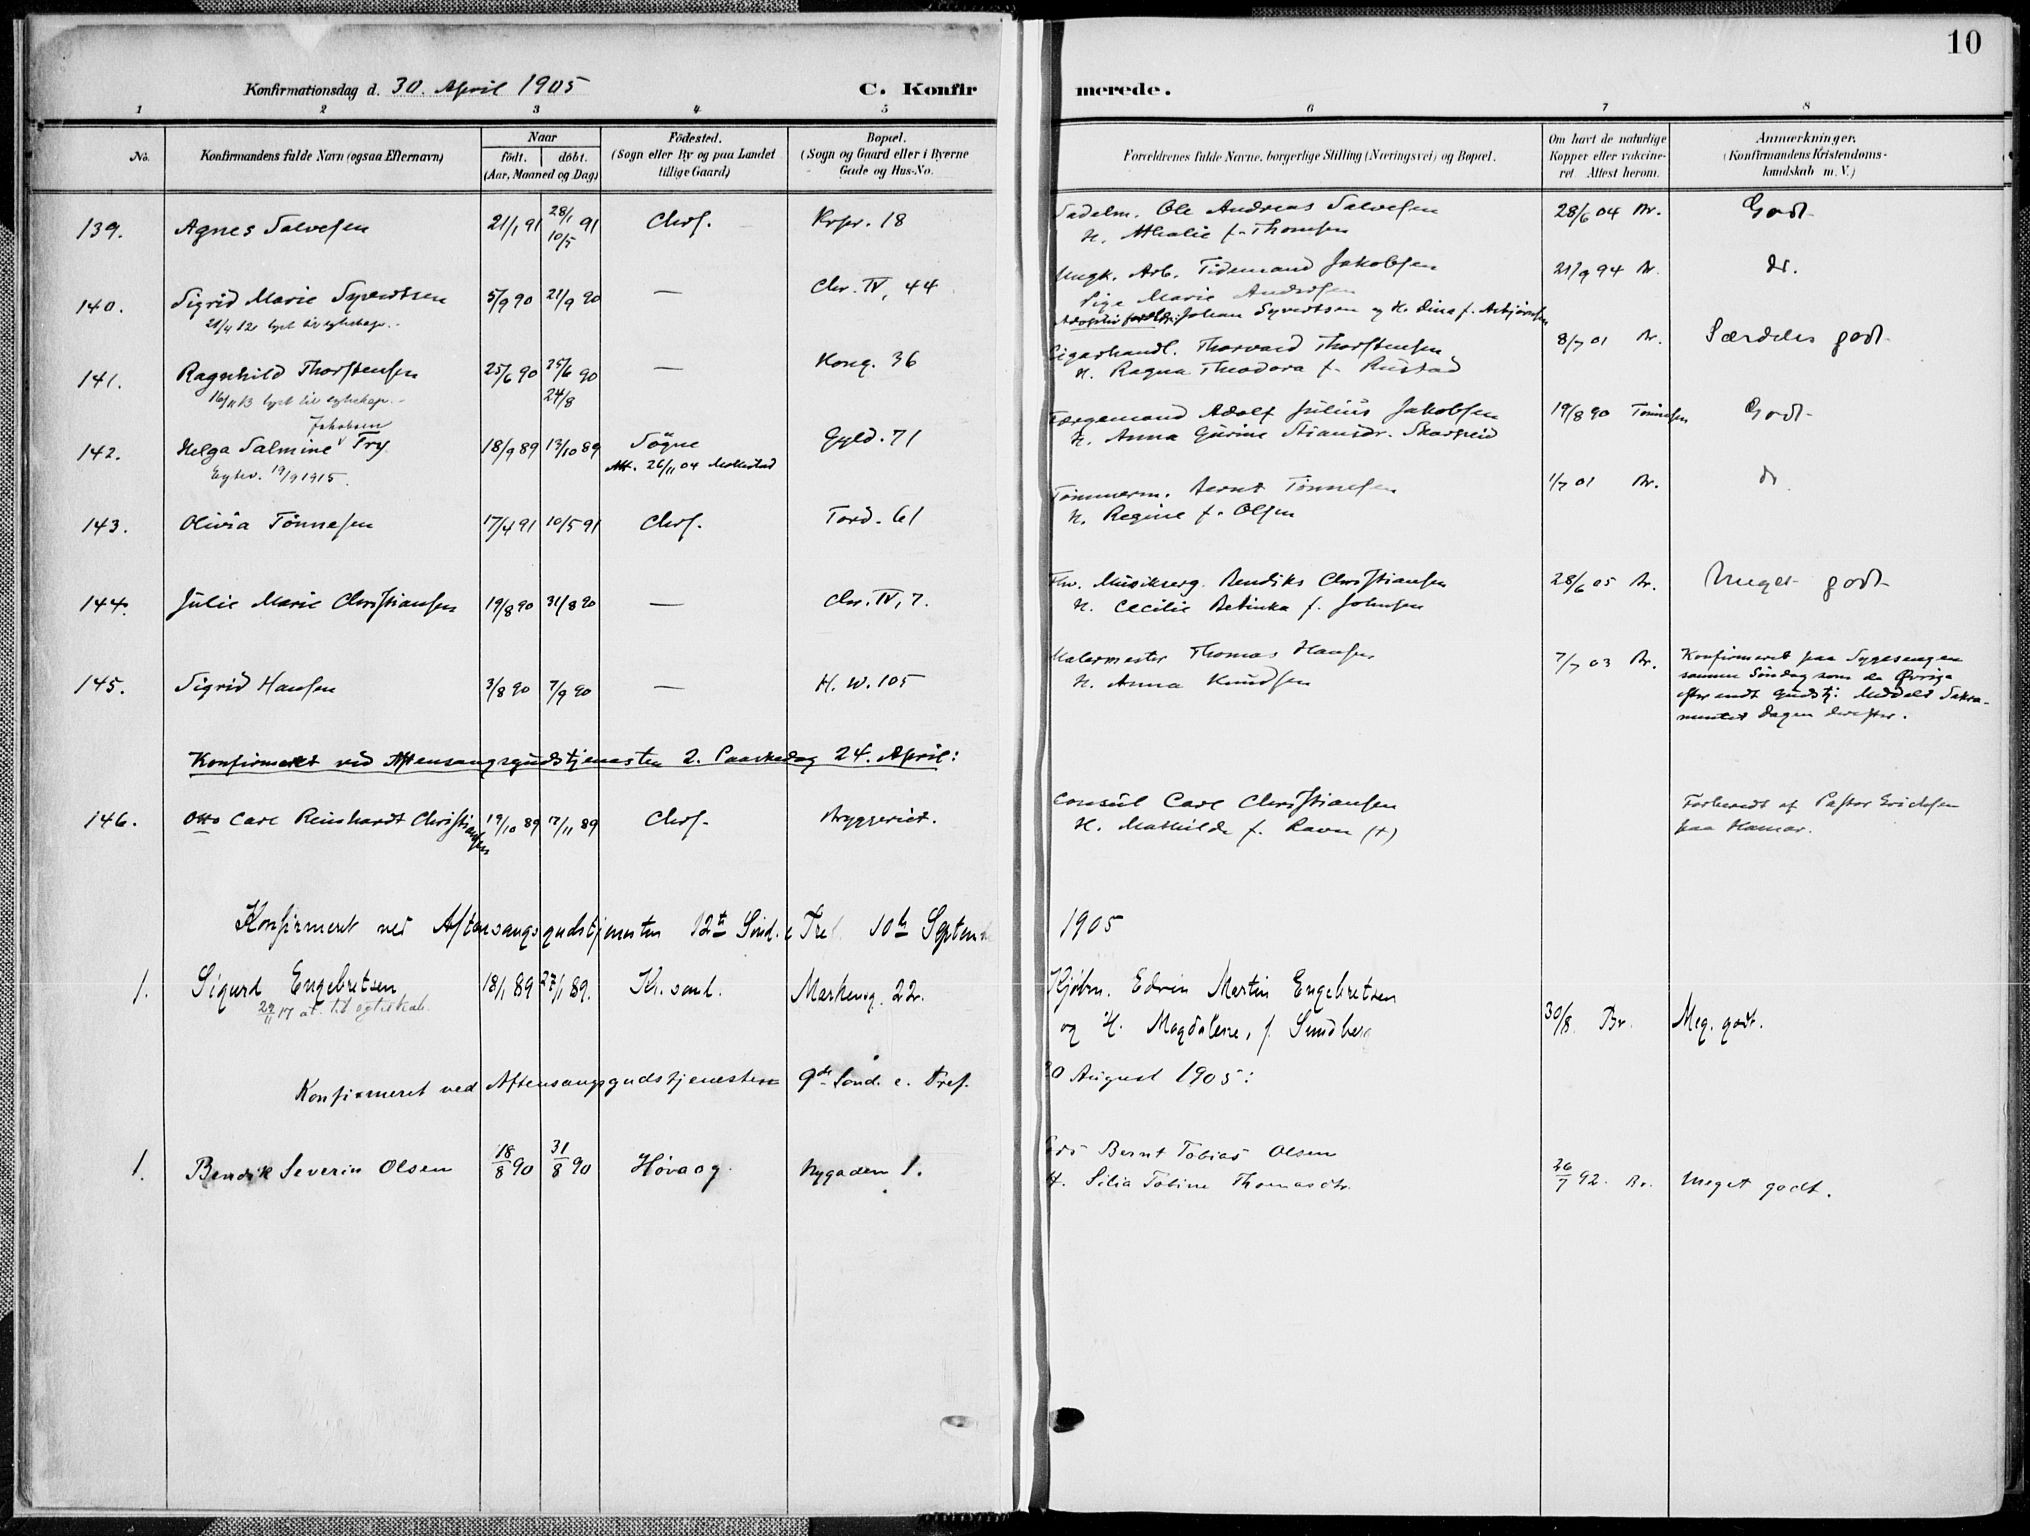 10
Konfirmationsdag d. 30. April 1905
C. Konfirmerede.
1 2 3 4 5 6 7 8
No.
Konfirmandens fulde Navn (ogsaa Efternavn)
Naar
födt. döbt.
(Aar, Maaned og Dag)
Födested.
(Sogn eller By og paa Landet
tillige Gaard)
Bopæl.
(Sogn og Gaard eller i Byerne
Gade og Hus-No.
Forældrenes fulde Navne, borgerlige Stilling (Næringsvei) og Bopæl.
Om havt de naturlige
Kopper eller vakcine-
ret Attest herom.
Anmærkninger,
(Konfirmandens Kristendoms-
kundskab m. V.)
139. Agnes Salvesen 21/1 91 28/1 91 10/5 Chrs. Krpr. 18
Sadelm. Ole Andreas Salvesen 28/6 04 Br. Godt
H. Athalie f. Thomsen
140. Sigrid Marie Syvertsen 5/9 90 21/9 90 — Chr. IV, 44
21/4 12 lyst til egteskap.
Ungk. Arb. Tidemand Jakobsen 21/9 94 Br. do.
Pige Marie Andersen
Adoptivforeldre: Johan Syvertsen og H. Dina f. Asbjørnsen
141. Ragnhild Thorstensen 25/6 90 25/6 90 24/8 — Kong. 36
16/11 13 lyst til egteskap.
Cigarhandl. Thorvald Thorstensen 8/7 01 Br. Særdeles godt
H. Ragna Theodora f. Rustad
Jakobsen
142. Helga Salmine Try 18/9 89 13/10 89 Søgne Gyld. 71
Egtev. 19/9 1915. Att. 26/11 04
Færgemand Adolf Julius Jakobsen 19/8 90 Tønnesen Godt
H. Anna Gurine Stiansdr.
143. Olivia Tönnesen 17/4 91 10/5 91 Chrs. Tord. 61
Tömmerm. Bernt Tönnesen 1/7 01 Br. do
H. Regine f. Olsen
144. Julie Marie Christiansen 19/8 90 31/8 90 — Chr. IV, 7.
Fhv. Musikserg. Bendiks Christiansen 28/6 05 Br. Meget godt
H. Cecilie Betinka f. Johnsen
145. Sigrid Hansen 3/8 90 7/9 90 — H. W. 105
Malermester Thomas Hansen 7/7 03 Br. Konfirmeret paa Sygesengen
H. Anna Knudsen samme Söndag som de Øvrige
efter endt Gudstj. Meddelt Sakra-
mentet dagen derefter.
Konfirmeret ved Aftensangsgudstjenesten 2. Paaskedag 24. April:
146. Otto Carl Reinhardt Christiansen 19/10 89 17/11 89 Chrs. Bryggeriet.
Consul Carl Christiansen Forberedt af Pastor Erichsen
H. Mathilde f. Ravn (†) paa Hamar.
Konfirmeret ved Aftensangsgudstjenesten 12te Sönd. e Tref. 10de September 1905
1. Sigurd Engebretsen 18/1 89 27/1 89. Kr.sand. Markensg. 22.
22/11 17 at. til egteskab.
Kjöbm. Edvin Martin Engebretsen
og H. Magdalene, f. Sundberg 30/8. Br. Meg. godt.
Konfirmeret ved Aftensangsgudstjenesten 9de Sönd. e. Tref. 20 August 1905:
1. Bendik Severin Olsen 18/8 90 31/8 90 Høvaag. Nygaden 1.
Bernt Tobias Olsen
H. Silia Tobine Thomasdtr. 26/7 92. Br. Meget godt.